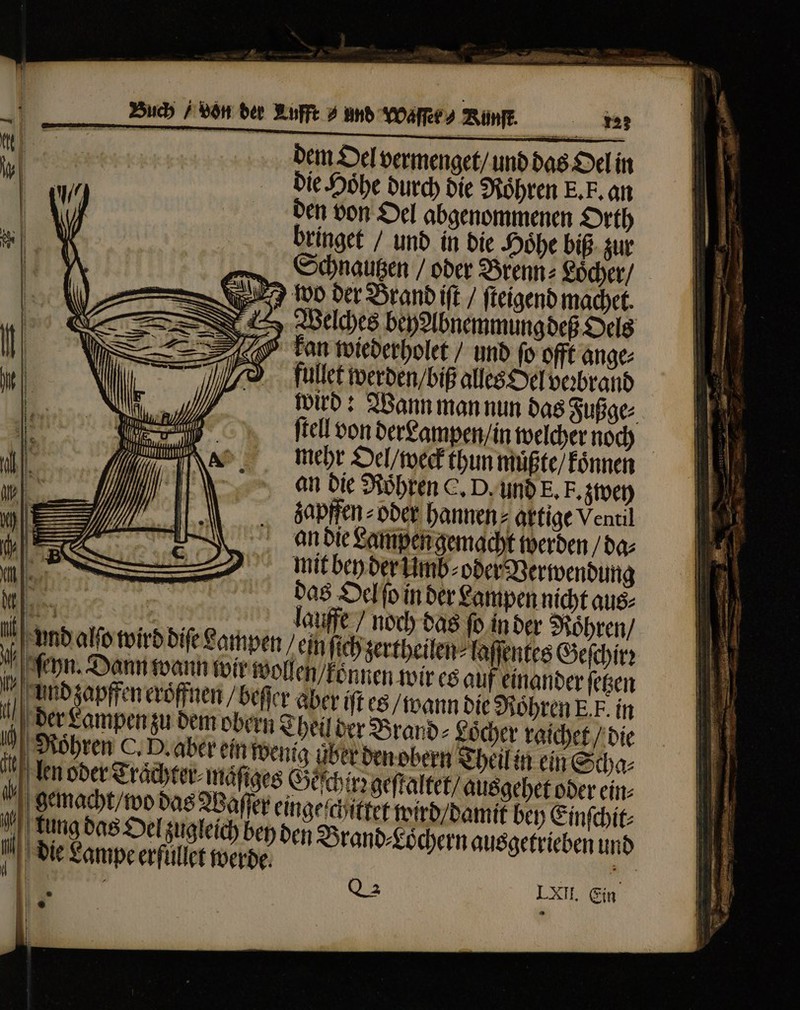 Buch / von der Lufft ⸗ und Waſſer⸗ Kunſt. 123
dem Oel vermenget / und das Oel in
die Hoͤhe durch die Roͤhren E. F. an
den von Oel abgenommenen Orth
bringet / und in die Hoͤhe biß zur
Schnautzen / oder Brenn⸗ Loͤcher /
wo der Brand iſt / ſteigend machet.
Welches bey Abnemmung deß Oels
kan wiederholet / und ſo offt ange⸗
fullet werden / biß alles Oel verbrand
wird: Wann man nun das Fußge⸗
ſtell von der Lampen / in welcher noch
mehr Oel / weck thun muͤßte / koͤnnen
an die Roͤhren C. D. und E. F. zwey
zapffen⸗ oder hannen⸗ artige Ventil
an die Lampen gemacht werden / da⸗
mit bey der Umb⸗ oder Verwendung
das Oel ſo in der Lampen nicht aus⸗
lauffe / noch das ſo in der Roͤhren /
und alſo wird diſe Lampen / ein ſich zertheilen⸗laſſentes Geſchirr
ſeyn. Dann wann wir wollen / koͤnnen wir es auf einander ſetzen
und zapffen eroͤffnen / beſſer aber iſt es / wann die Roͤhren E. F. in
der Lampen zu dem obern Theil der Brand⸗ Loͤcher raichet / die
Roͤhren C. D. aber ein wenig uͤber den obern Theil in ein Scha⸗
len oder Traͤchter⸗ maͤſiges Geſchirr geſtaltet / ausgehet oder ein⸗
gemacht / wo das Waſſer eingeſchittet wird / damit bey Einſchit⸗
tung das Oel zugleich bey den Brand⸗Loͤchern ausgetrieben und
die Lampe erfullet werde.
Q 2 LXII. Ein
F
A
B C